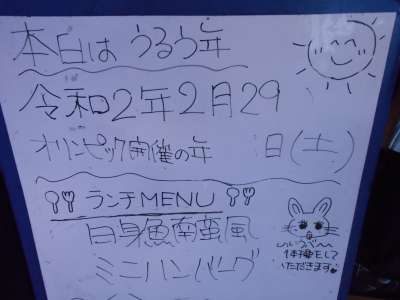 本日は うるう年
令和2年2月29
オリンピック開催の年 日(土)
ランチMENU
白身魚南蛮風
ミニハンバーグ
体操をして
いただきます